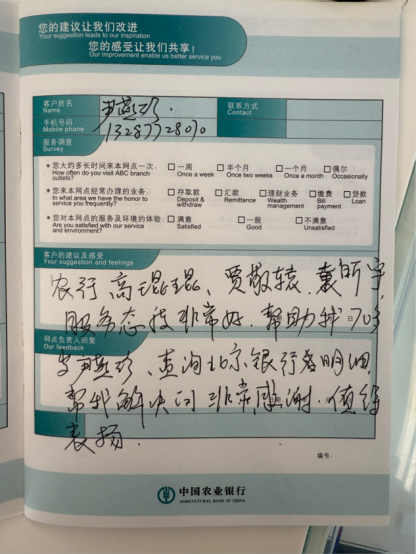 您的建议让我们改进
Your suggestion leads to our inspiration
您的感受让我们共享！
Our improvement enable us better service you.
客户姓名
Name
联系方式
Contact
手机号码
Mobile phone
服务调查
Survey
您大约多长时间来本网点一次：
How often do you visit ABC branch outlets?
□ 一周 □ 半个月 □ 一个月 □ 偶尔
Once a week Once two weeks Once a month Occasionally
您来本网点经常办理的业务：
In what area we have the honor to service you frequently?
□ 存取款 □ 汇款 □ 理财业务 □ 缴费 □ 贷款
Deposit & withdraw Remittance Wealth management Bill payment Loan
您对本网点的服务及环境的体验：
Are you satisfied with our service and environment?
□ 满意 □ 一般 □ 不满意
Satisfied Good Unsatisfied
客户的建议及感受
Your suggestion and feelings
农行高琨琨、贾敬辕、袁昕宇
服务态度非常好，帮助我 703
网点负责人回复
Our feedback
燕珍，查询北京银行卡明细，
帮我解决问 非常感谢，值得
表扬．
编号：
中国农业银行
AGRICULTURAL BANK OF CHINA